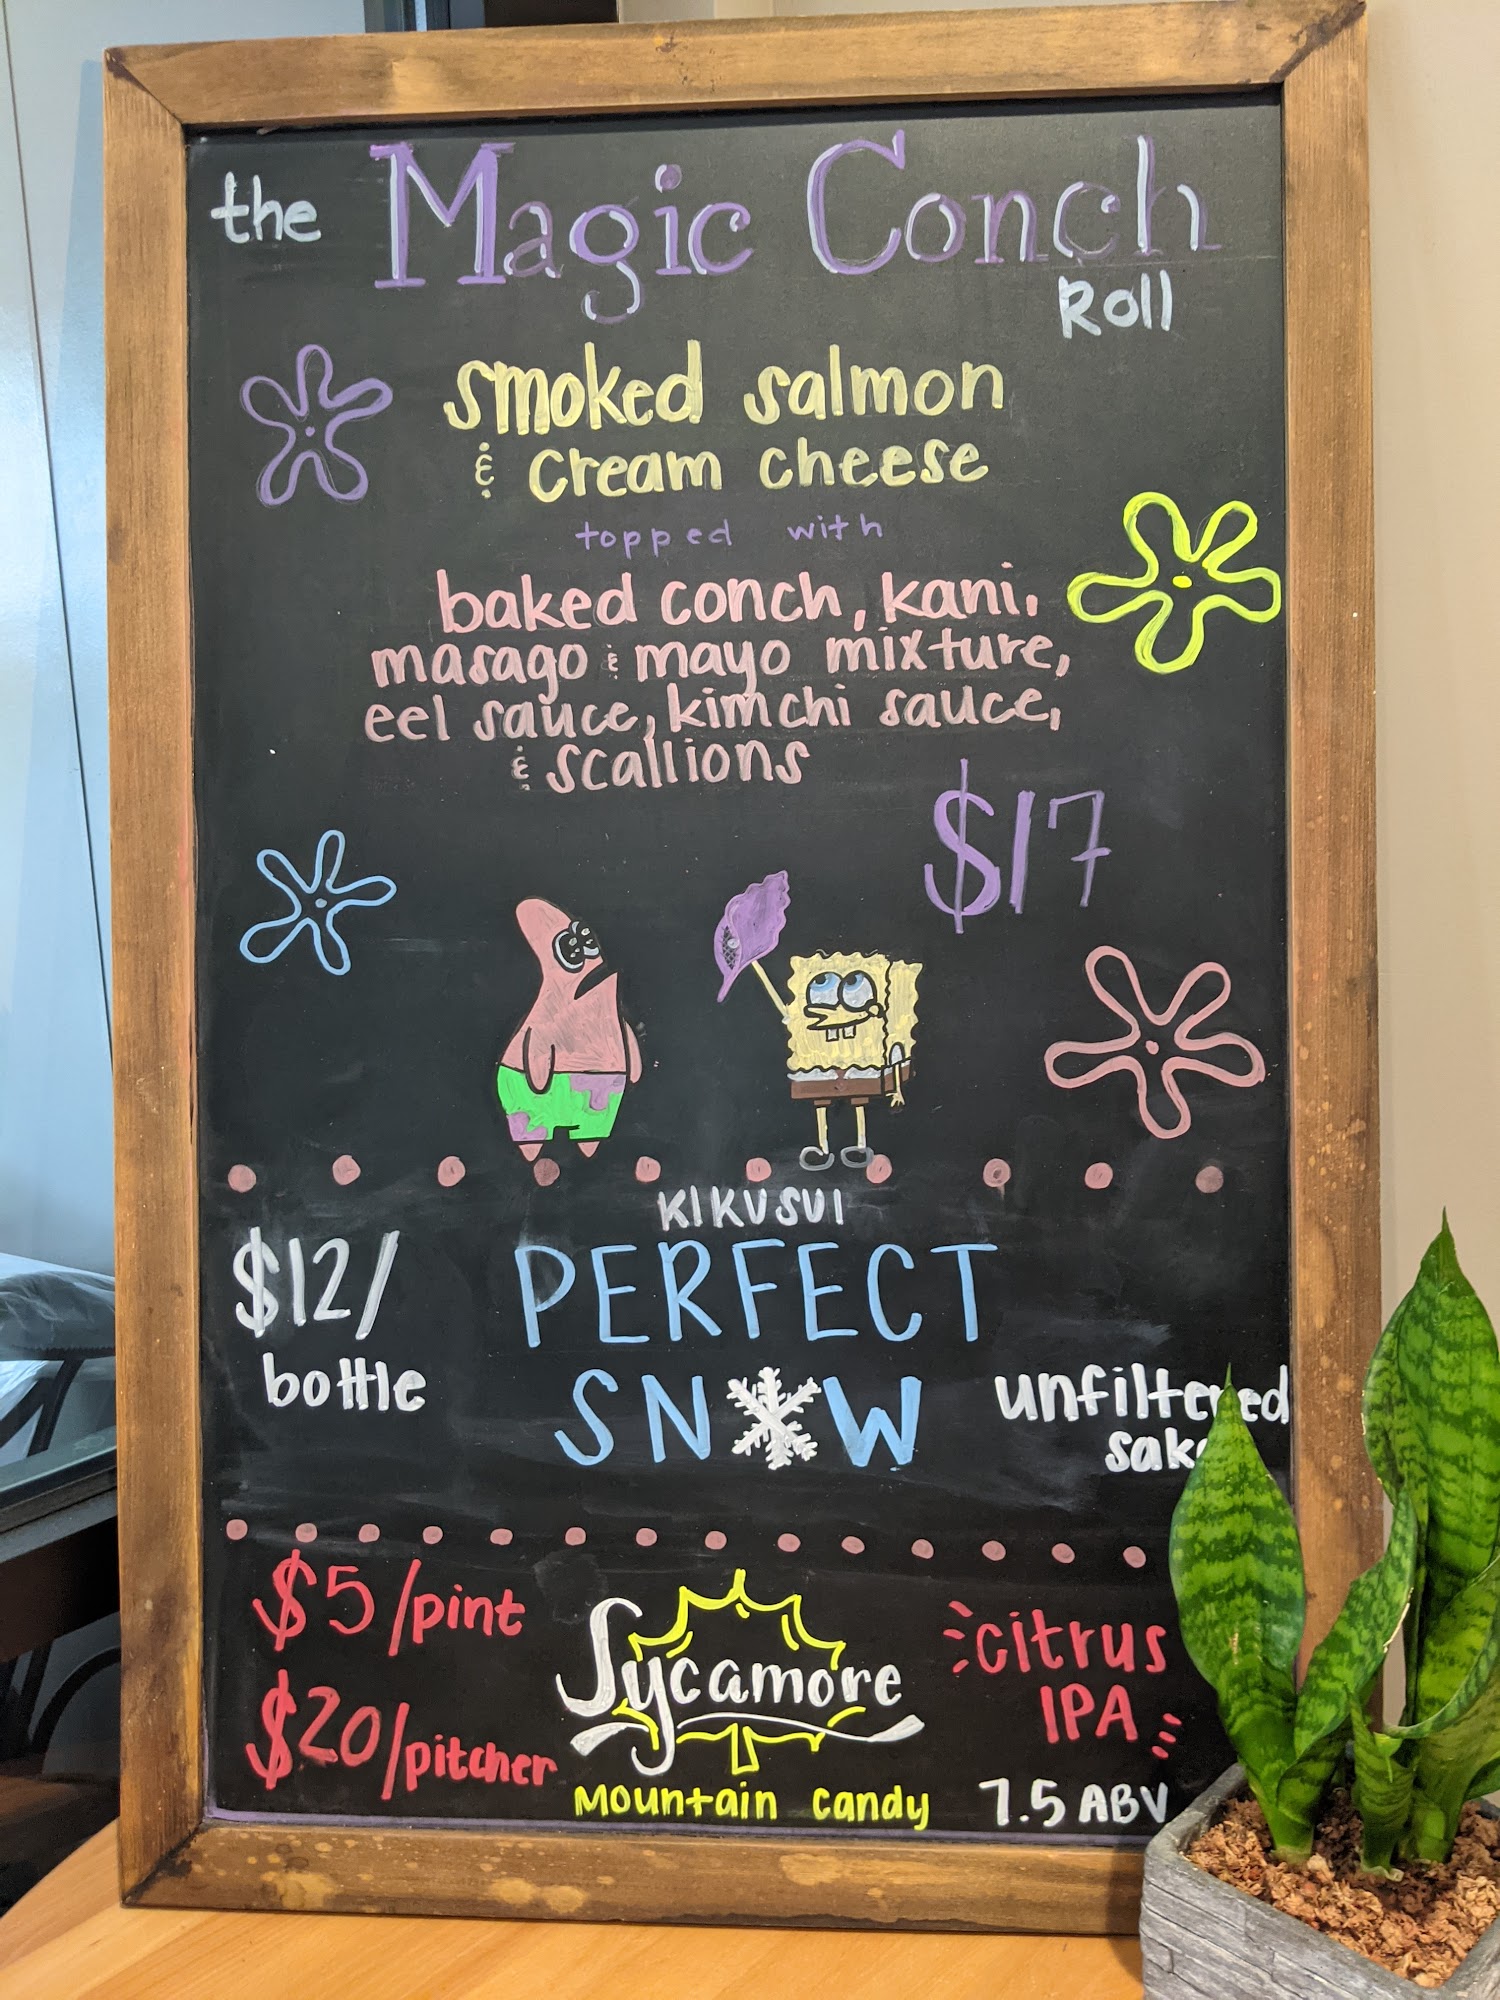 the Magic Conch
Roll
smoked salmon
& cream cheese
topped with
baked conch, kani,
masago & mayo mixture,
eel sauce, kimchi sauce,
& scallions
$17
KIKUSUI
$12/
bottle
PERFECT
SNOW
unfiltered
sake
$5/pint
$20/pitcher
Sycamore
Mountain Candy
citrus
IPA
7.5 ABV